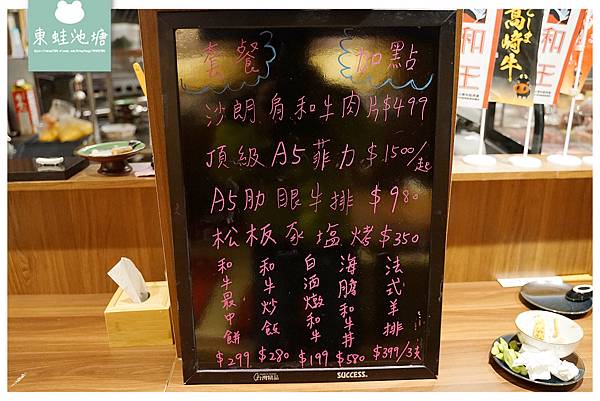 東蛙池塘
套餐 加點
沙朗肩和牛肉片$499
頂級A5菲力$1500/起
A5肋眼牛排 $980
松板豕塩烤$350
和牛最中餅 $299
和牛炒飯 $280
白酒燉和牛 $199
海膽和牛丼 $580
法式羊排 $399/3支
台灣精品
SUCCESS.
和王
高崎牛
和王